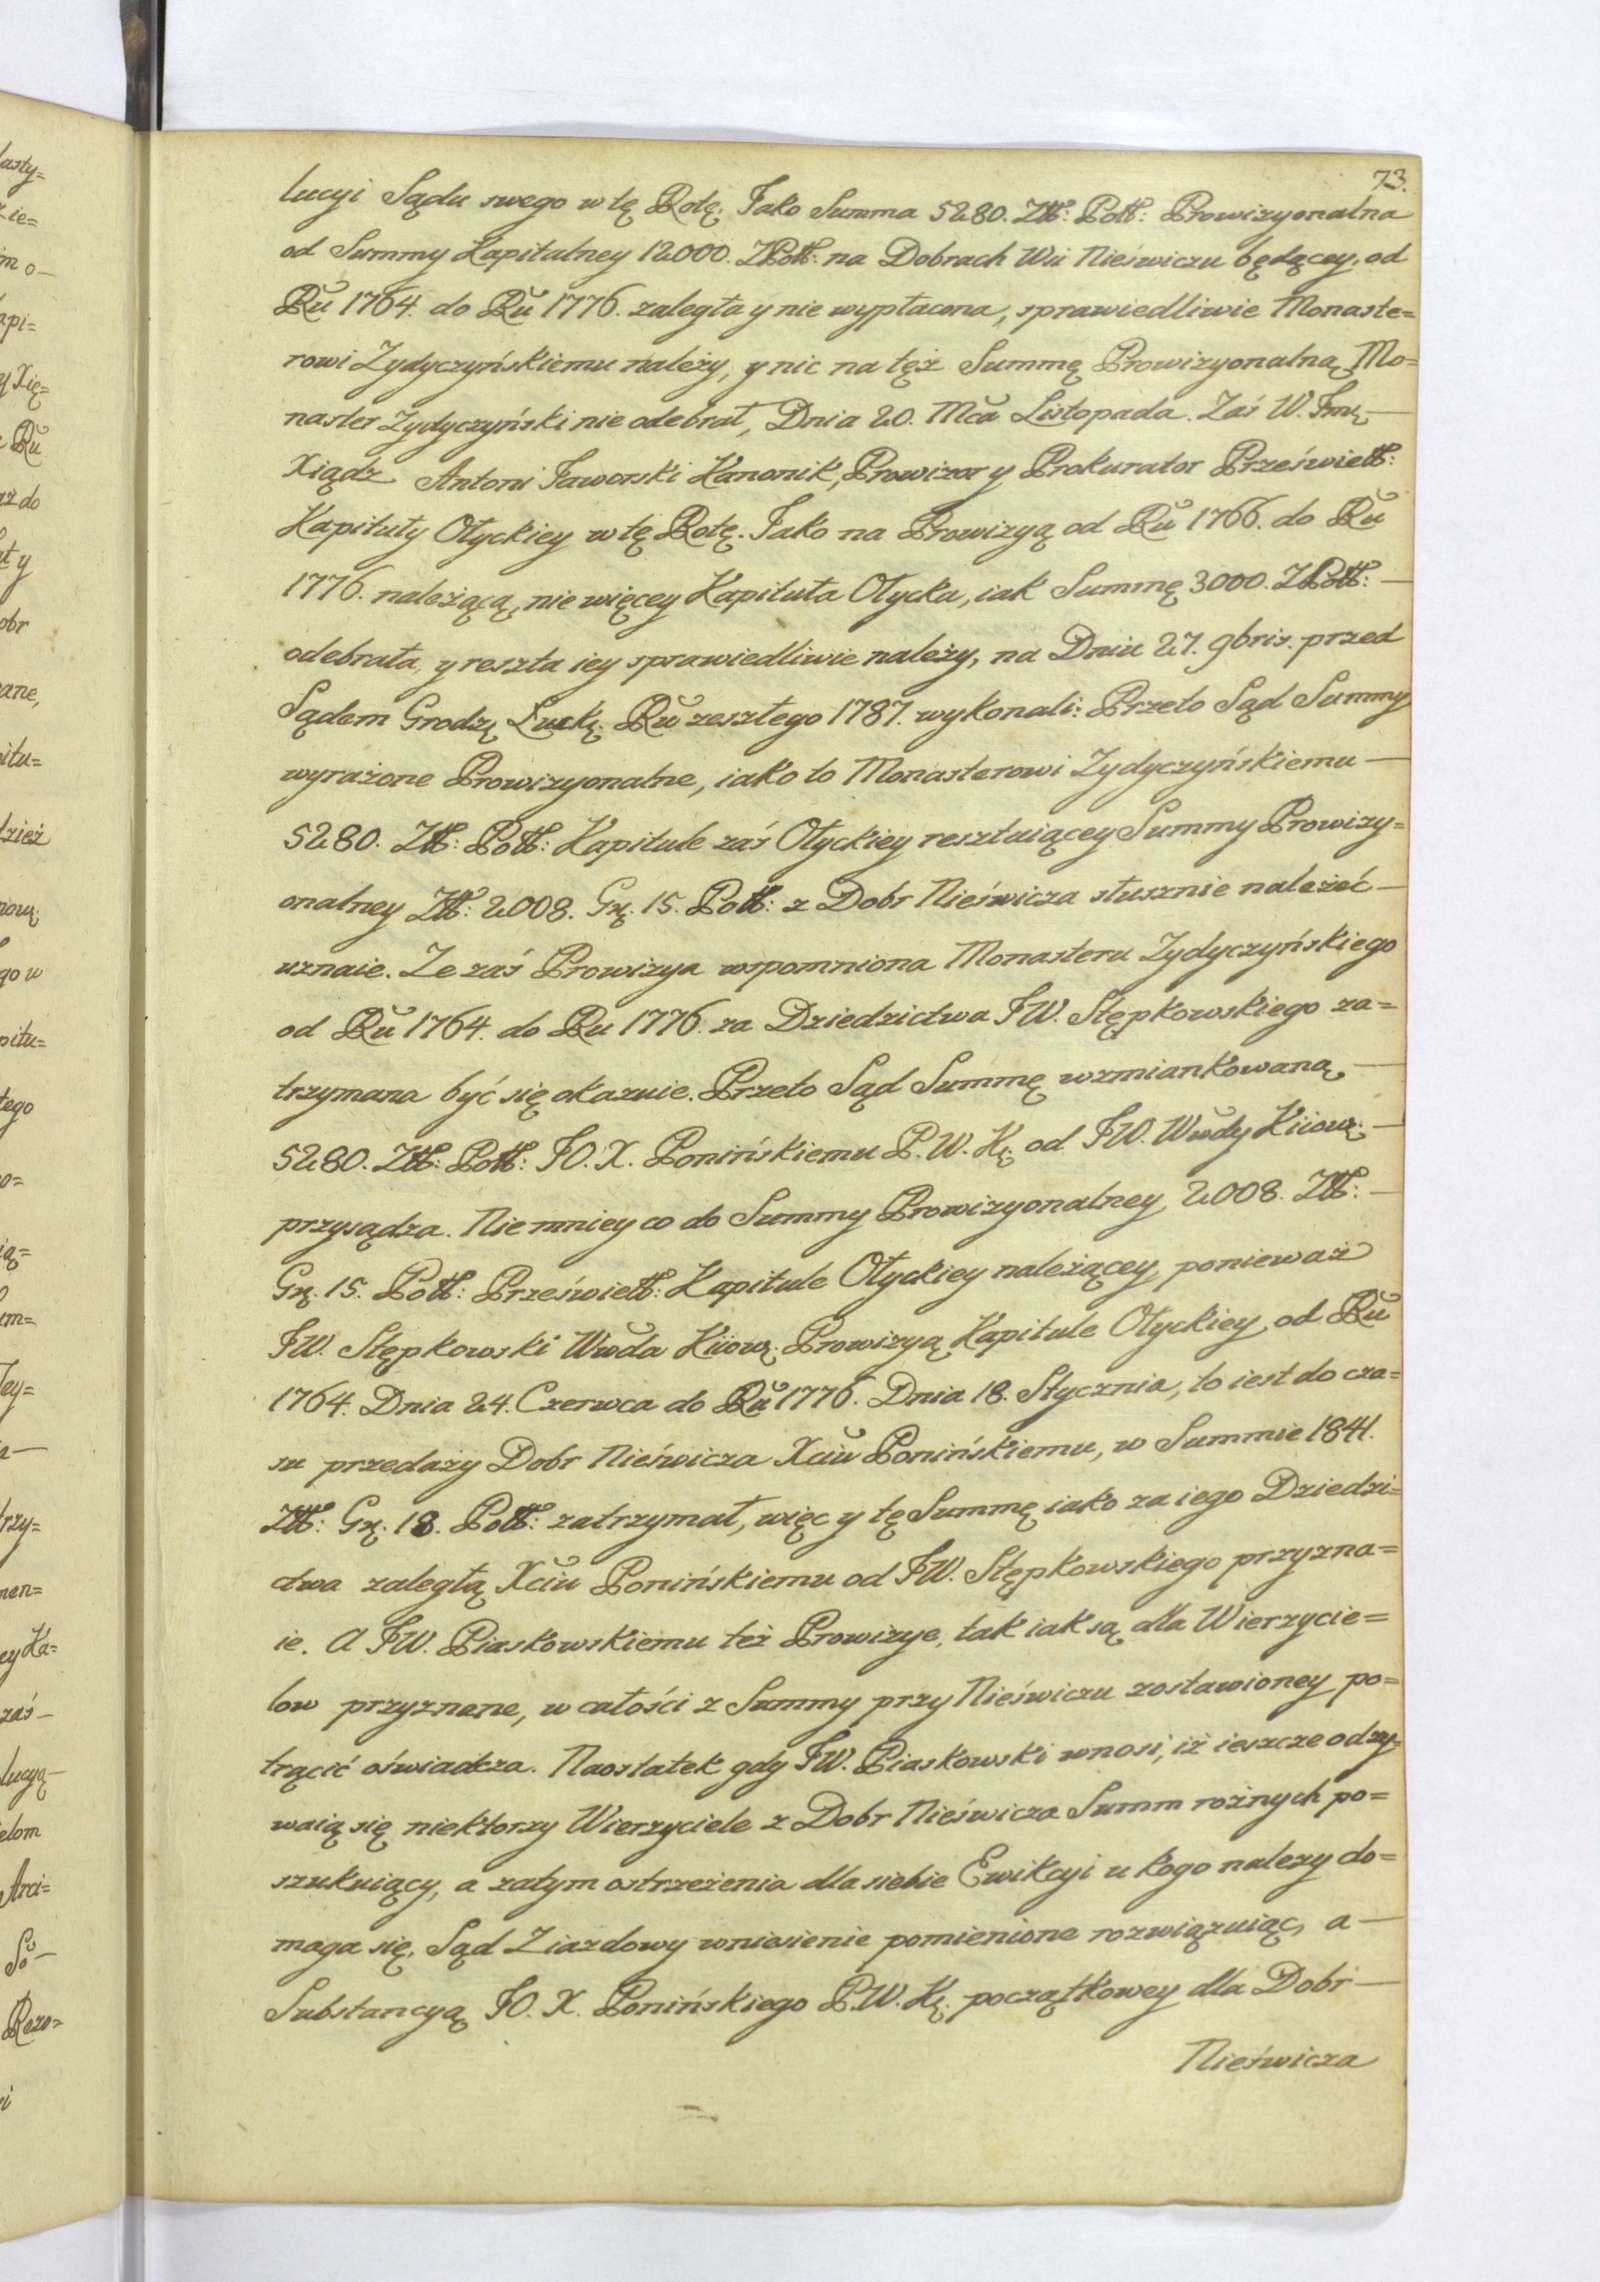 73.
lucyi Sądu swego w tę Rotę. Jako Summa 5280. Złł: Poll: Prowizyonalna
od Summy Kapitalney 12000. ZPoll: na Dobrach Wsi Nieświczu będącey, od
Ru 1764. do Ru 1776. zaległa y nie wypłacona, sprawiedliwie Monaste=
rowi Zydyczyńskiemu należy, y nic na tęż Summę Prowizyonalną Mo=
naster Zydyczyński nie odebrał, Dnia 20. Mca Listopada. Zaś W. Jmć
Xiądz Antoni Jaworski Kanonik, Prowizor y Prokurator Prześwietł:
Kapituły Ołyckiey w tę Rotę. Jako na Prowizyą od Ru 1766. do Ru
1776. należącą, nie więcey Kapituła Ołycka, iak Summę 3000. ZPoll: —
odebrała, y reszta iey sprawiedliwie należy, na Dniu 27. 9bris. przed
Sądem Grodz. Łuck. Ru zeszłego 1787. wykonali: Przeto Sąd Summy
wyrażone Prowizyonalne, iako to Monasterowi Zydyczyńskiemu —
5280. Złł: Poll: Kapitule zaś Ołyckiey resztuiącey Summy Prowizy=
onalney Złł: 2008. Gr. 15. Poll: z Dobr Nieświcza słusznie należeć —
uznaie. Ze zaś Prowizya wspomniona Monasteru Zydyczyńskiego
od Ru 1764. do Ru 1776. za Dziedzictwa JW. Stępkowskiego za=
trzymana być się okazuie. Przeto Sąd Summę wzmiankowaną —
5280. Złł: Poll: J.O. X. Ponińskiemu P. W. K. od JW. Wwdy Kiiow. —
przysądza. Nie mniey co do Summy Prowizyonalney 2008. Złł: —
Gr. 15. Poll: Prześwietł: Kapitule Ołyckiey należącey, ponieważ
JW. Stępkowski Wwda Kiiow. Prowizyą Kapitule Ołyckiey od Ru
1764. Dnia 24. Czerwca do Ru 1776. Dnia 18. Stycznia, to iest do cza=
su przedaży Dobr Nieświcza Xciu Ponińskiemu, w Summie 1841.
Złł: Gr. 18. Poll: zatrzymał, więc y tę Summę iako za iego Dziedzi=
ctwa zaległą Xciu Ponińskiemu od JW. Stępkowskiego przyzna=
ie. A JW. Piaskowskiemu też Prowizye, tak iak są dla Wierzycie=
low przyznane, w całości z Summy przy Nieświczu zostawioney po=
trącić oświadcza. Naostatek gdy JW. Piaskowski wnosi, iż ieszcze odzy=
waią się niektorzy Wierzyciele z Dobr Nieświcza Summ rożnych po=
szukuiący, a zatym ostrzeżenia dla siebie Ewikcyi u kogo nalezy do=
maga się. Sąd Ziazdowy wniesienie pomienione rozwiązuiąc, a —
Substancyą J.O. X. Ponińskiego P.W.K. początkowey dla Dobr —
Nieświcza